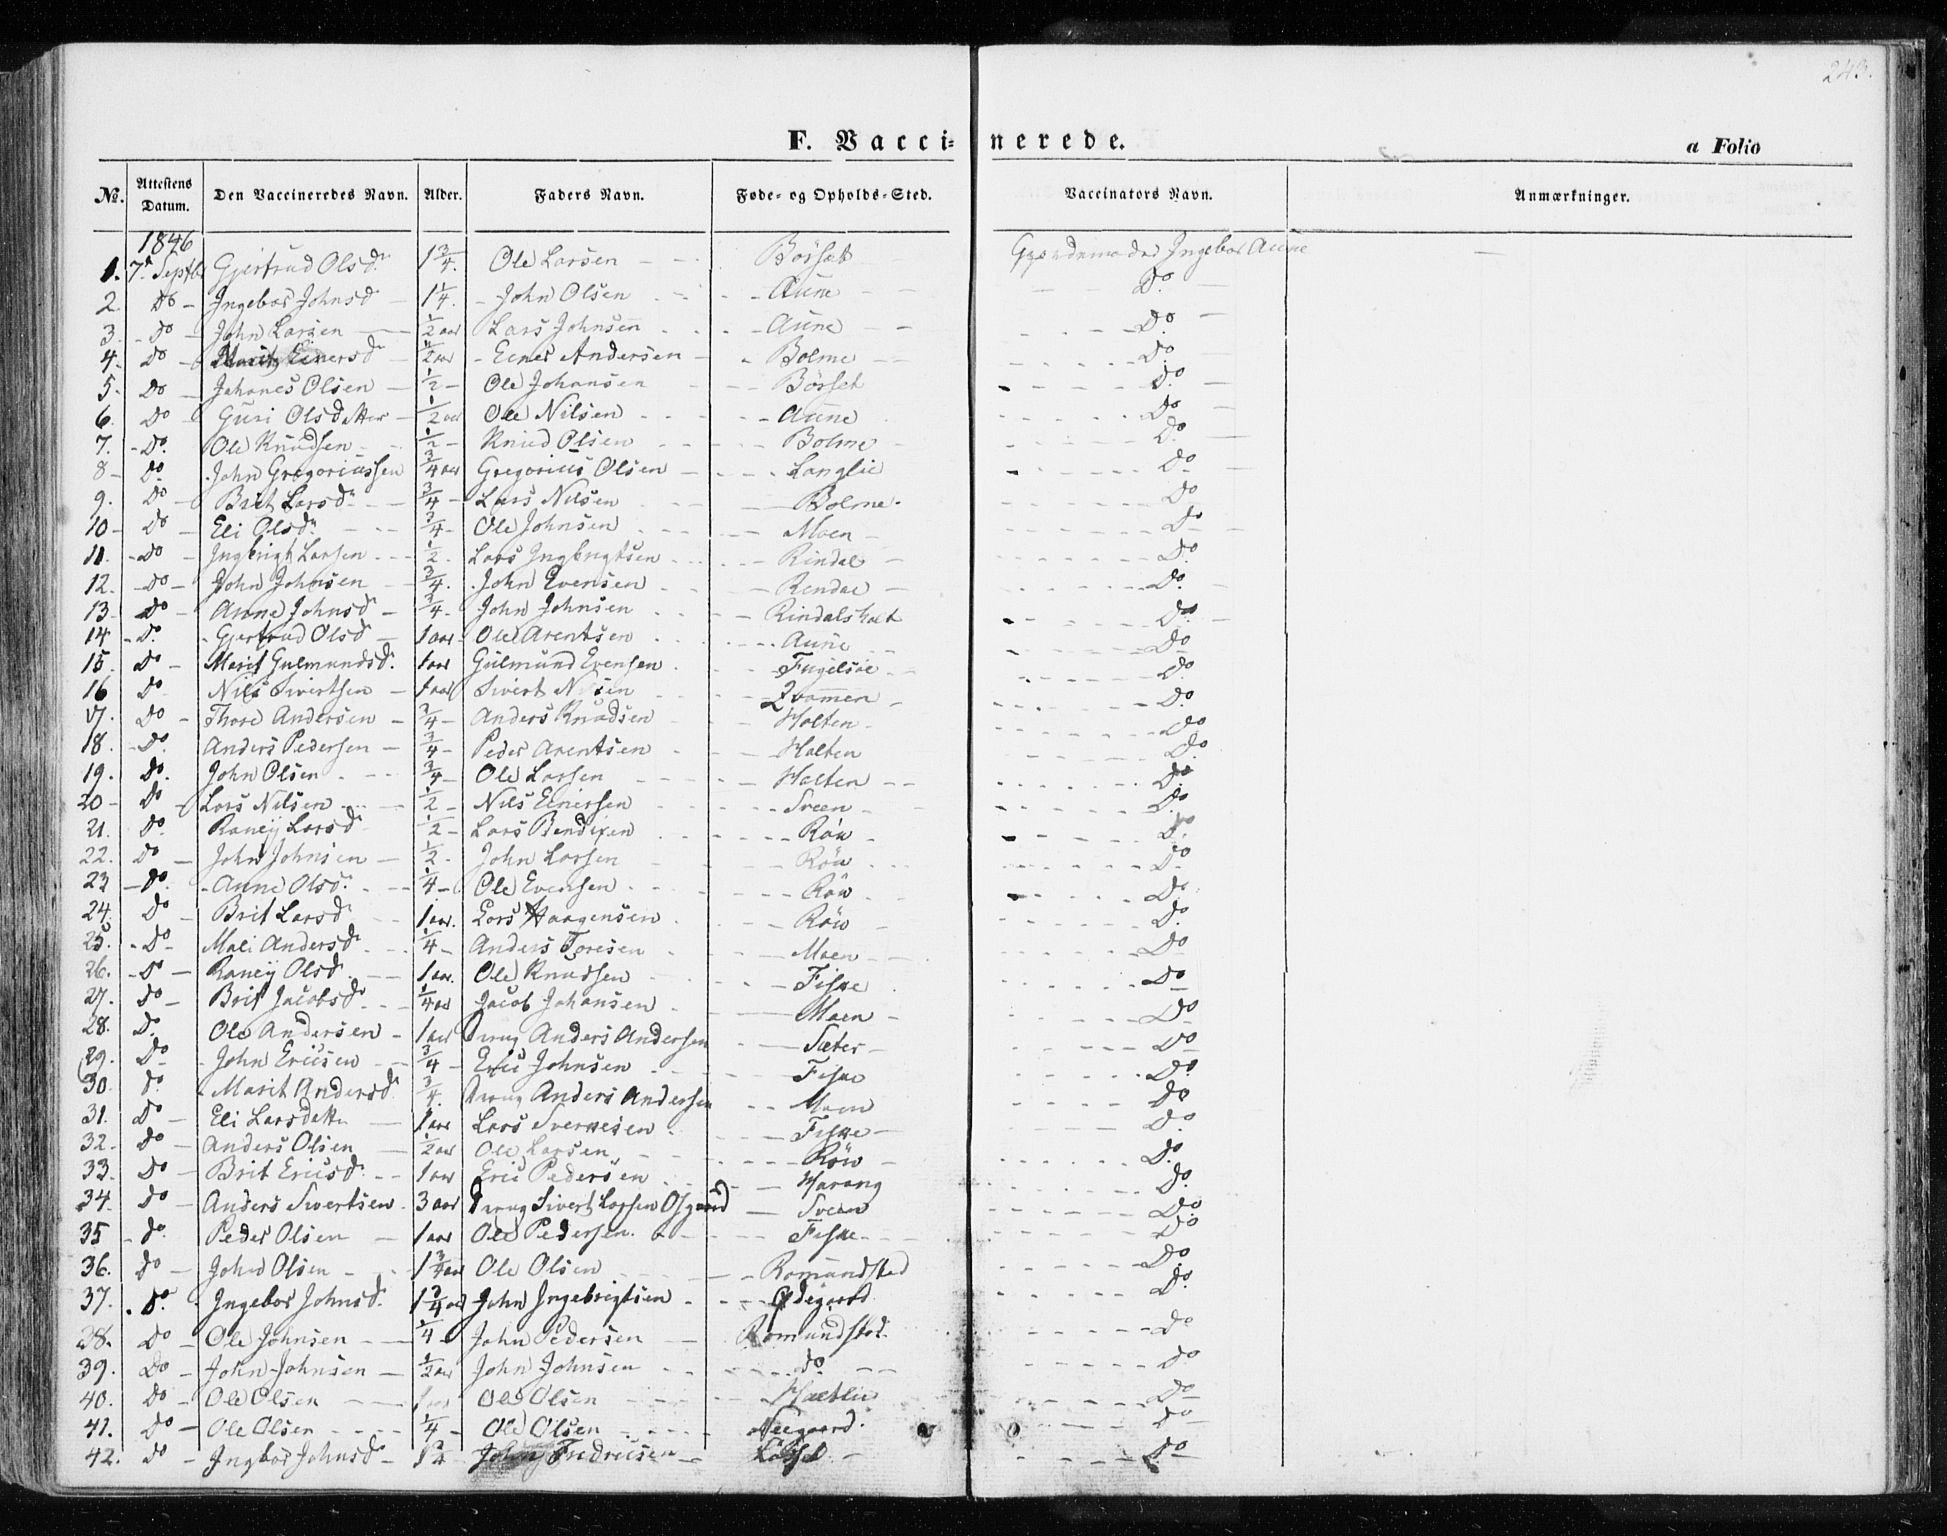 243.
F. Vaccinerede.
a Folio
No. Attestens Datum. Den Vaccineredes Navn. Alder. Faders Navn. Føde- og Opholds-Sted. Vaccinators Navn. Anmærkninger.
1846
1. 7d Septbr Gjertrud Olsdr 1 3/4. Ole Larsen - - Börset Ingebor Aune -
2. Do - Ingebor Johnsdr 1 1/4. - John Olsen - Aune - Do
3. - Do - John Larsen - 1/2 aar Lars Johnsen - Aune - Do
4. Do - Marit Einersdr 1/2 aar - Einer Andersen - Bolme - Do
5. Do - Johanes Olsen - 1/2 - Ole Johansen - Börset - Do
6. Do Guri Olsdatter - 1/2 aar Ole Nilsen - Aune - Do
7. - Do. Ole Knudsen - 1/2 - Knud Olsen - Bolme - Do
8 - Do. John Gregoriussen 3/4 aar Gregorius Olsen - Langlie - Do
9. Do - Brit Larsdr - 3/4 - Lars Nilsen - Bolme. Do
10 - Do - Eli Olsdr - 3/4 - Ole Johnsen - Moen - Do
11. - Do - Ingbrigt Larsen - 1/2. Lars Ingbrigtsen - Rindal - Do
12. - Do - John Johnsen - 3/4. John Evensen - Rendal - Do.
13 - Do - Anne Johnsdr - 3/4 - John Johnsen - Rindalsholt - Do
14 - Do. - Gjertrud Olsdr - 1 aar - Ole Arentsen - Aune - Do
15. Do - Marit Gulmundsdr. 1 aar Gulmund Evensen - Fugelsöe - Do
16 Do Nils Sivertsen - 1 aar Sivert Nilsen - Qvammen - Do
17. Do - Thore Andersen - 3/4 - Anders Knudsen - Holten - Do
18. - Do. Anders Pedersen - 3/4 - Peder Arentsen - Holten Do
19. Do. John Olsen - 3/4 - Ole Larsen - Holten - Do
20 - Do - Lars Nilsen - 1/2 - Nils Einersen - Sveen - Do
21. Do. Raney Larsdr 1/2 - Lars Bendixen - Röw - Do
22. Do - John Johnsen - 1/2 - John Larsen - Röw - Do
23 - Do. - Anne Olsdr. - 1/4 - Ole Evensen - Röw - Do
24. Do - Brit Larsdr - 1 aar. Lars Haagensen - Röw - Do.
25. - Do - Mali Andersdr - 1/4 - Anders Toresen - Moen - Do
26. - Do - Raney Olsdr - 1 aar. Ole Knudsen - Fiske - Do
27. Do - Brit Jacobsdr - 1/4 aar Jacob Johansen - Moen - Do
28. Do. Ole Andersen - 1 aar Anders Andersen - Sæter - Do
29. Do - John Ericsen - 3/4 - Eric Johnsen - Fiske - Do
30. Do - Marit Andersdr 3/4. Anders Andersen - Moen Do
31. Do - Eli Larsdatter - 1 aar Lars Svernesen - Fiske - Do
32. - Do - Anders Olsen - 1/2 aar Ole Larsen - Röw - Do.
33. Do - Brit Ericsdr. - 1 aar Eric Pedersen - Harang Do
34. Do - Anders Sivertsen. 3 aar Sivert Larsen - Sveen - Do
35 - Do. Peder Olsen - 1 aar Ole Pedersen. - Fiske - Do
36. Do - John Olsen - 1 3/4 aar Ole Olsen - Romundsted Do
37. . Do. Ingebor Johnsdr. 1 3/4 aar John Ingebrigtsen - Ødegaard. Do.
28. Do - Ole Johnsen - 1/4 - John Pedersen - Romundstad. - Do
39. Do - John Johnsen - 1/2 aar John Johnsen - do - Do
40. Do - Ole Olsen - 1 aar Ole Olsen - Do
41. Do - Ole Olsen - 1/4 - Ole Olsen - Neegaard. - Do
42. Do - Ingbor Johnsdr - John Fredricsen - Do